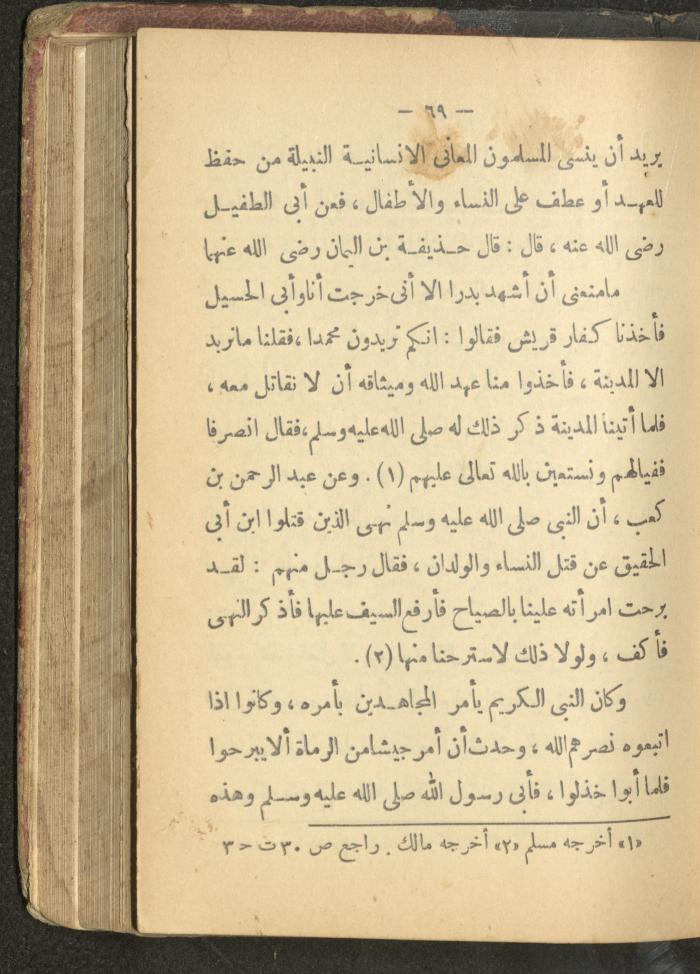 — ٦٩ —
يريد أن ينسى المسلمون المعانى الانسانيـة النبيلة من حفظ
للعهـد أو عطف على النساء والأطفال ، فعن أبى الطفيـل
رضى الله عنه ، قال : قال حـذيفـة بن اليمان رضى الله عنهما
مامنعنى أن أشهد بدرا الا أنى خرجت أناوأبى الحسيل
فأخذنا كفار قريش فقالوا : انكم تريدون محمدا ،فقلنا مانريد
الا المدينة ، فأخذوا منا عهد الله وميثاقه أن لا نقاتل معه ،
فلما أتينا المدينة ذكر ذلك له صلى الله عليه وسلم،فقال انصرفا
ففيالهم ونستعين بالله تعالى عليهم (١) . وعن عبد الرحمن بن
كعب ، أن النبى صلى الله عليه وسلم نهى الذين قتلوا ابن أبى
الحقيق عن قتل النساء والولدان ، فقال رجـل منهم : لقـد
برحت امرأته علينا بالصياح فأرفع السيف عليها فأذكر النهى
فأكف ، ولولا ذلك لاسترحنا منها (٢) .
وكان النبى الكريم يأمر المجاهـدين بأمره ، وكانوا اذا
اتبعوه نصرهم الله ، وحدث أن أمر جيشا من الرماة ألا يبرحوا
فلما أبوا خذلوا ، فأبى رسول الله صلى الله عليه وسـلم وهذه
«١» أخرجه مسلم «٢» أخرجه مالك . راجع ص ٣٠ ت ح ٣